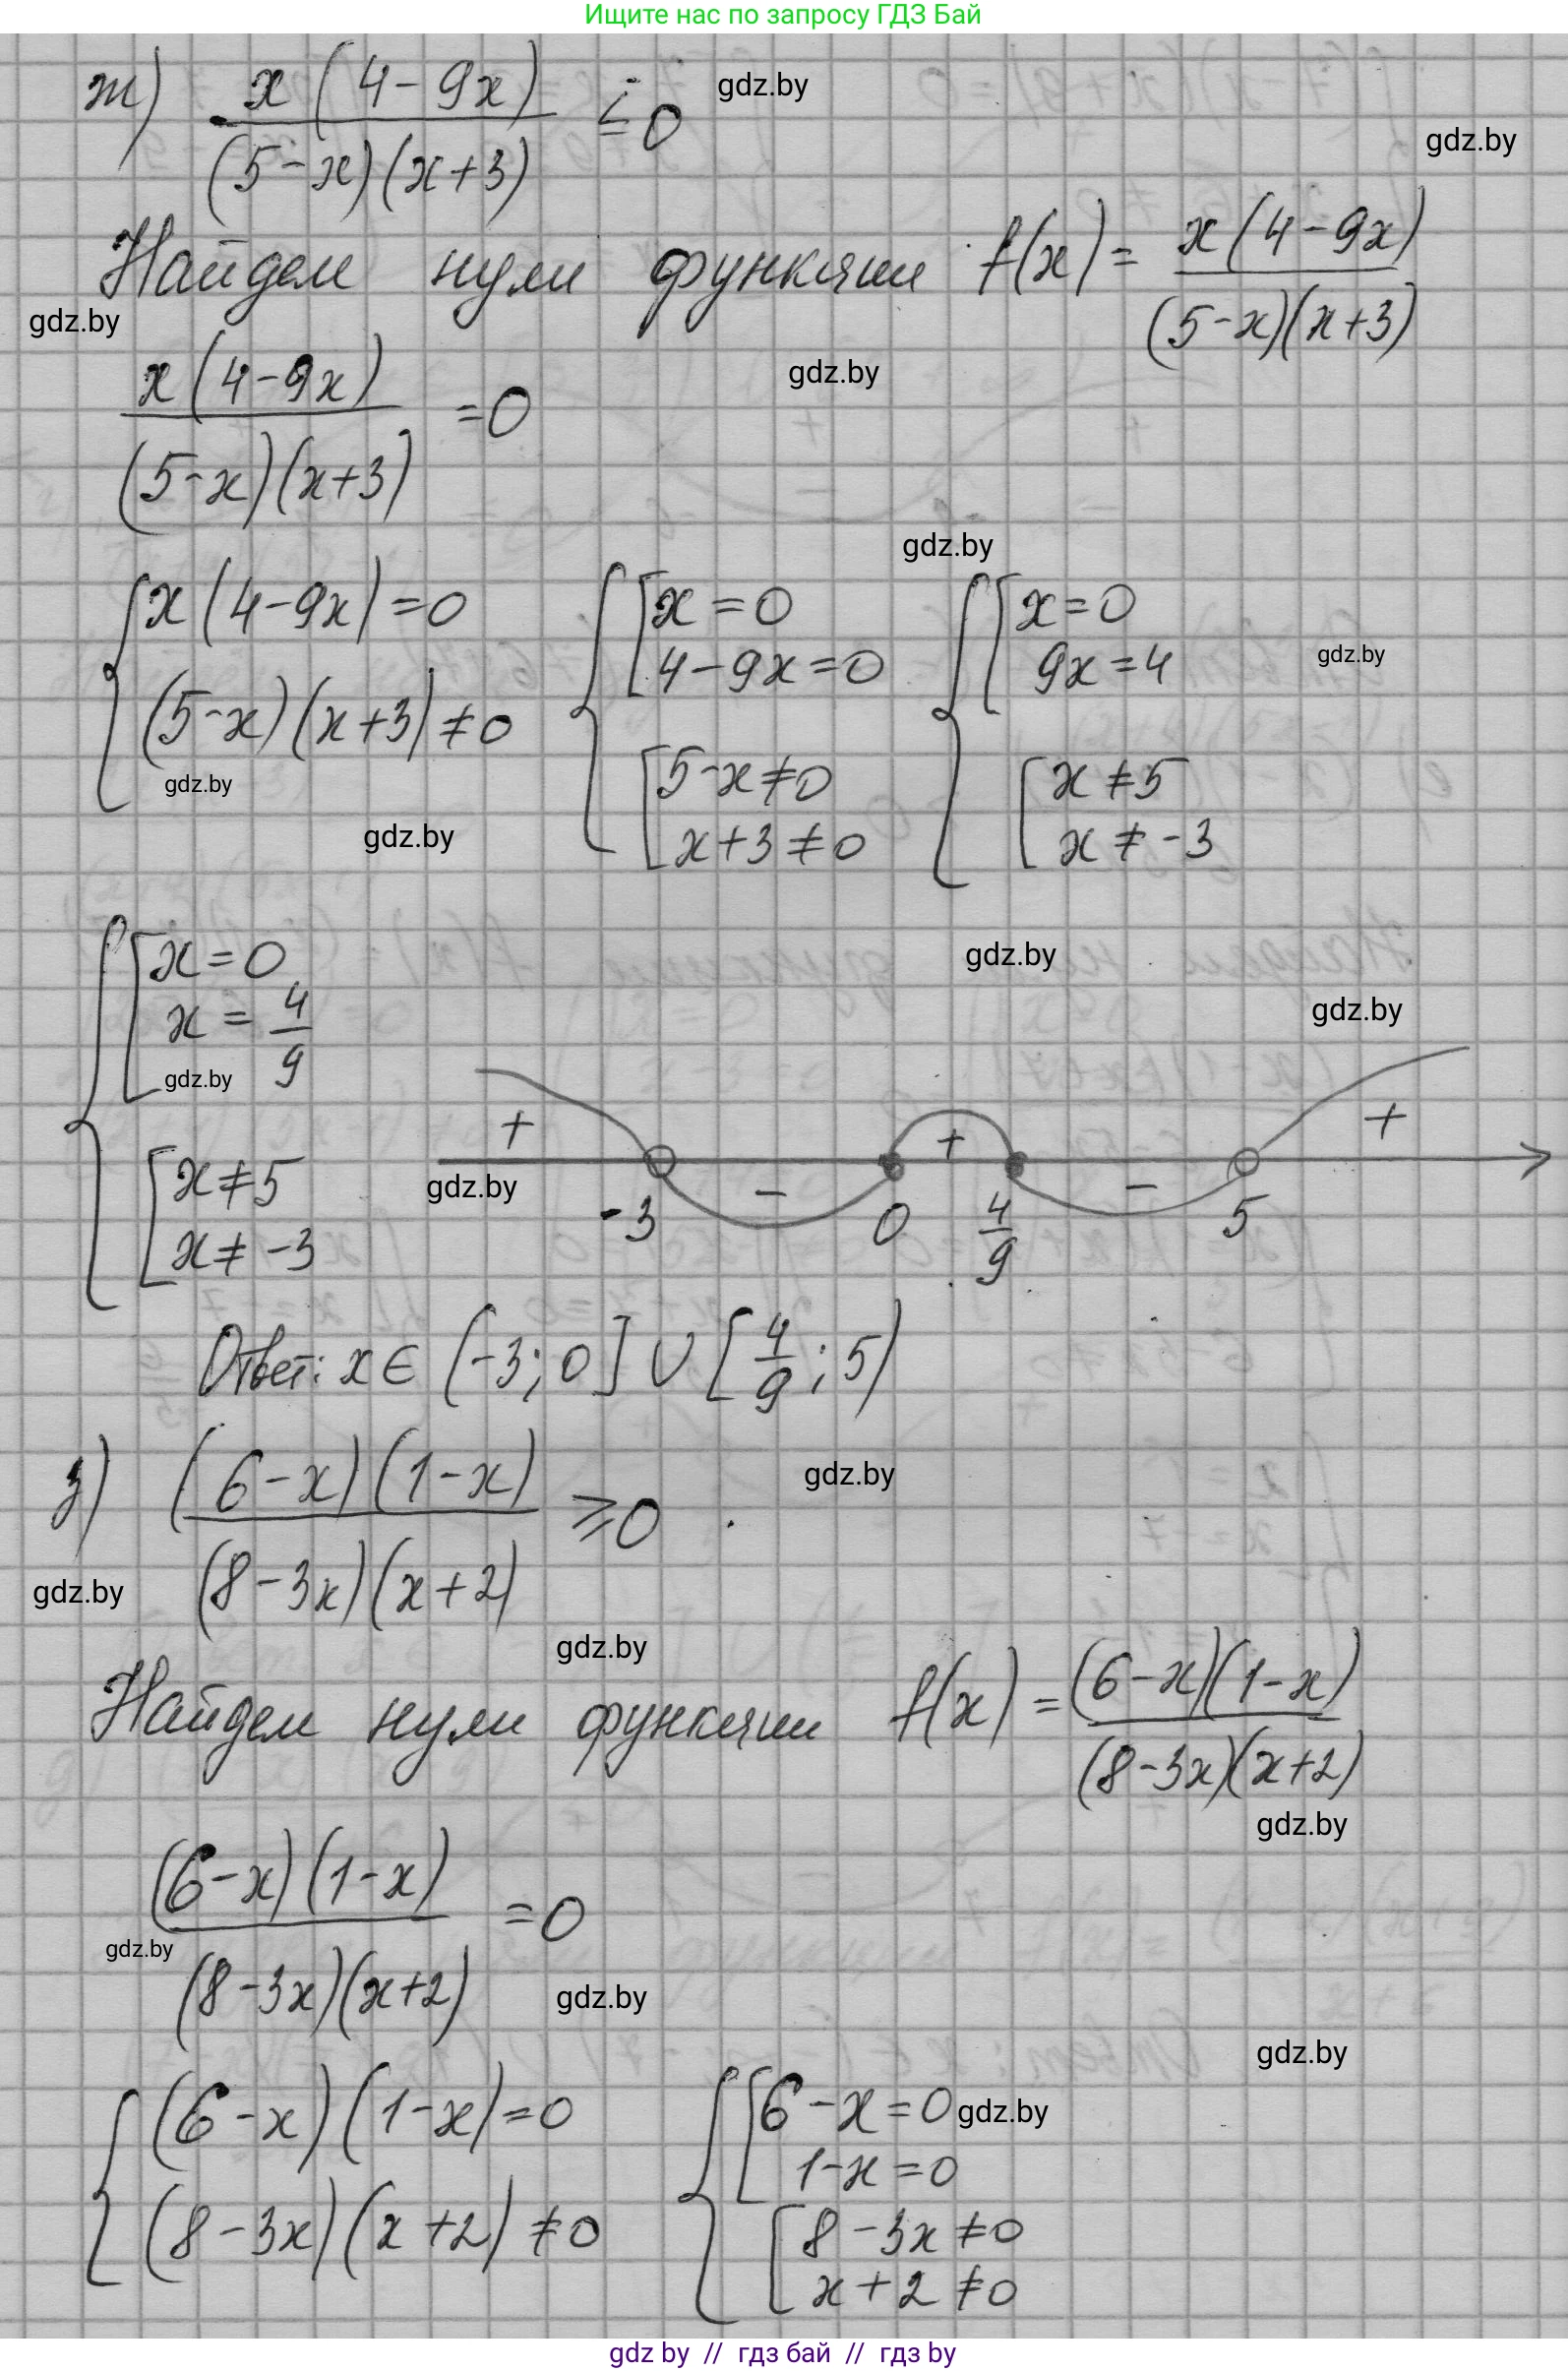 Ищите нас по запросу ГДЗ Бай
ж) x(4-9x) / (5-x)(x+3) ≤ 0
gdz.by
gdz.by
Найдем нули функции f(x) = x(4-9x) / (5-x)(x+3)
gdz.by
x(4-9x) / (5-x)(x+3) = 0
gdz.by
gdz.by
{ x(4-9x)=0 { [ x=0 { [ x=0
4-9x=0 9x=4
gdz.by
(5-x)(x+3)≠0 [ 5-x≠0 [ x≠5
gdz.by
x+3≠0 x≠-3
gdz.by
{ [ x=0
gdz.by
x = 4/9
gdz.by
gdz.by
+ - + - +
[ x≠5
gdz.by
-3 0 4/9 5
x≠-3
Ответ: x ∈ (-3; 0] ∪ [4/9; 5)
з) (6-x)(1-x) / (8-3x)(x+2) ≥ 0
gdz.by
gdz.by
gdz.by
Найдем нули функции f(x) = (6-x)(1-x) / (8-3x)(x+2)
gdz.by
(6-x)(1-x) / (8-3x)(x+2) = 0
gdz.by
gdz.by
gdz.by
{ (6-x)(1-x)=0 { [ 6-x=0
gdz.by
1-x=0
(8-3x)(x+2)≠0 [ 8-3x≠0
x+2≠0
gdz by // гдз бай // гдз by